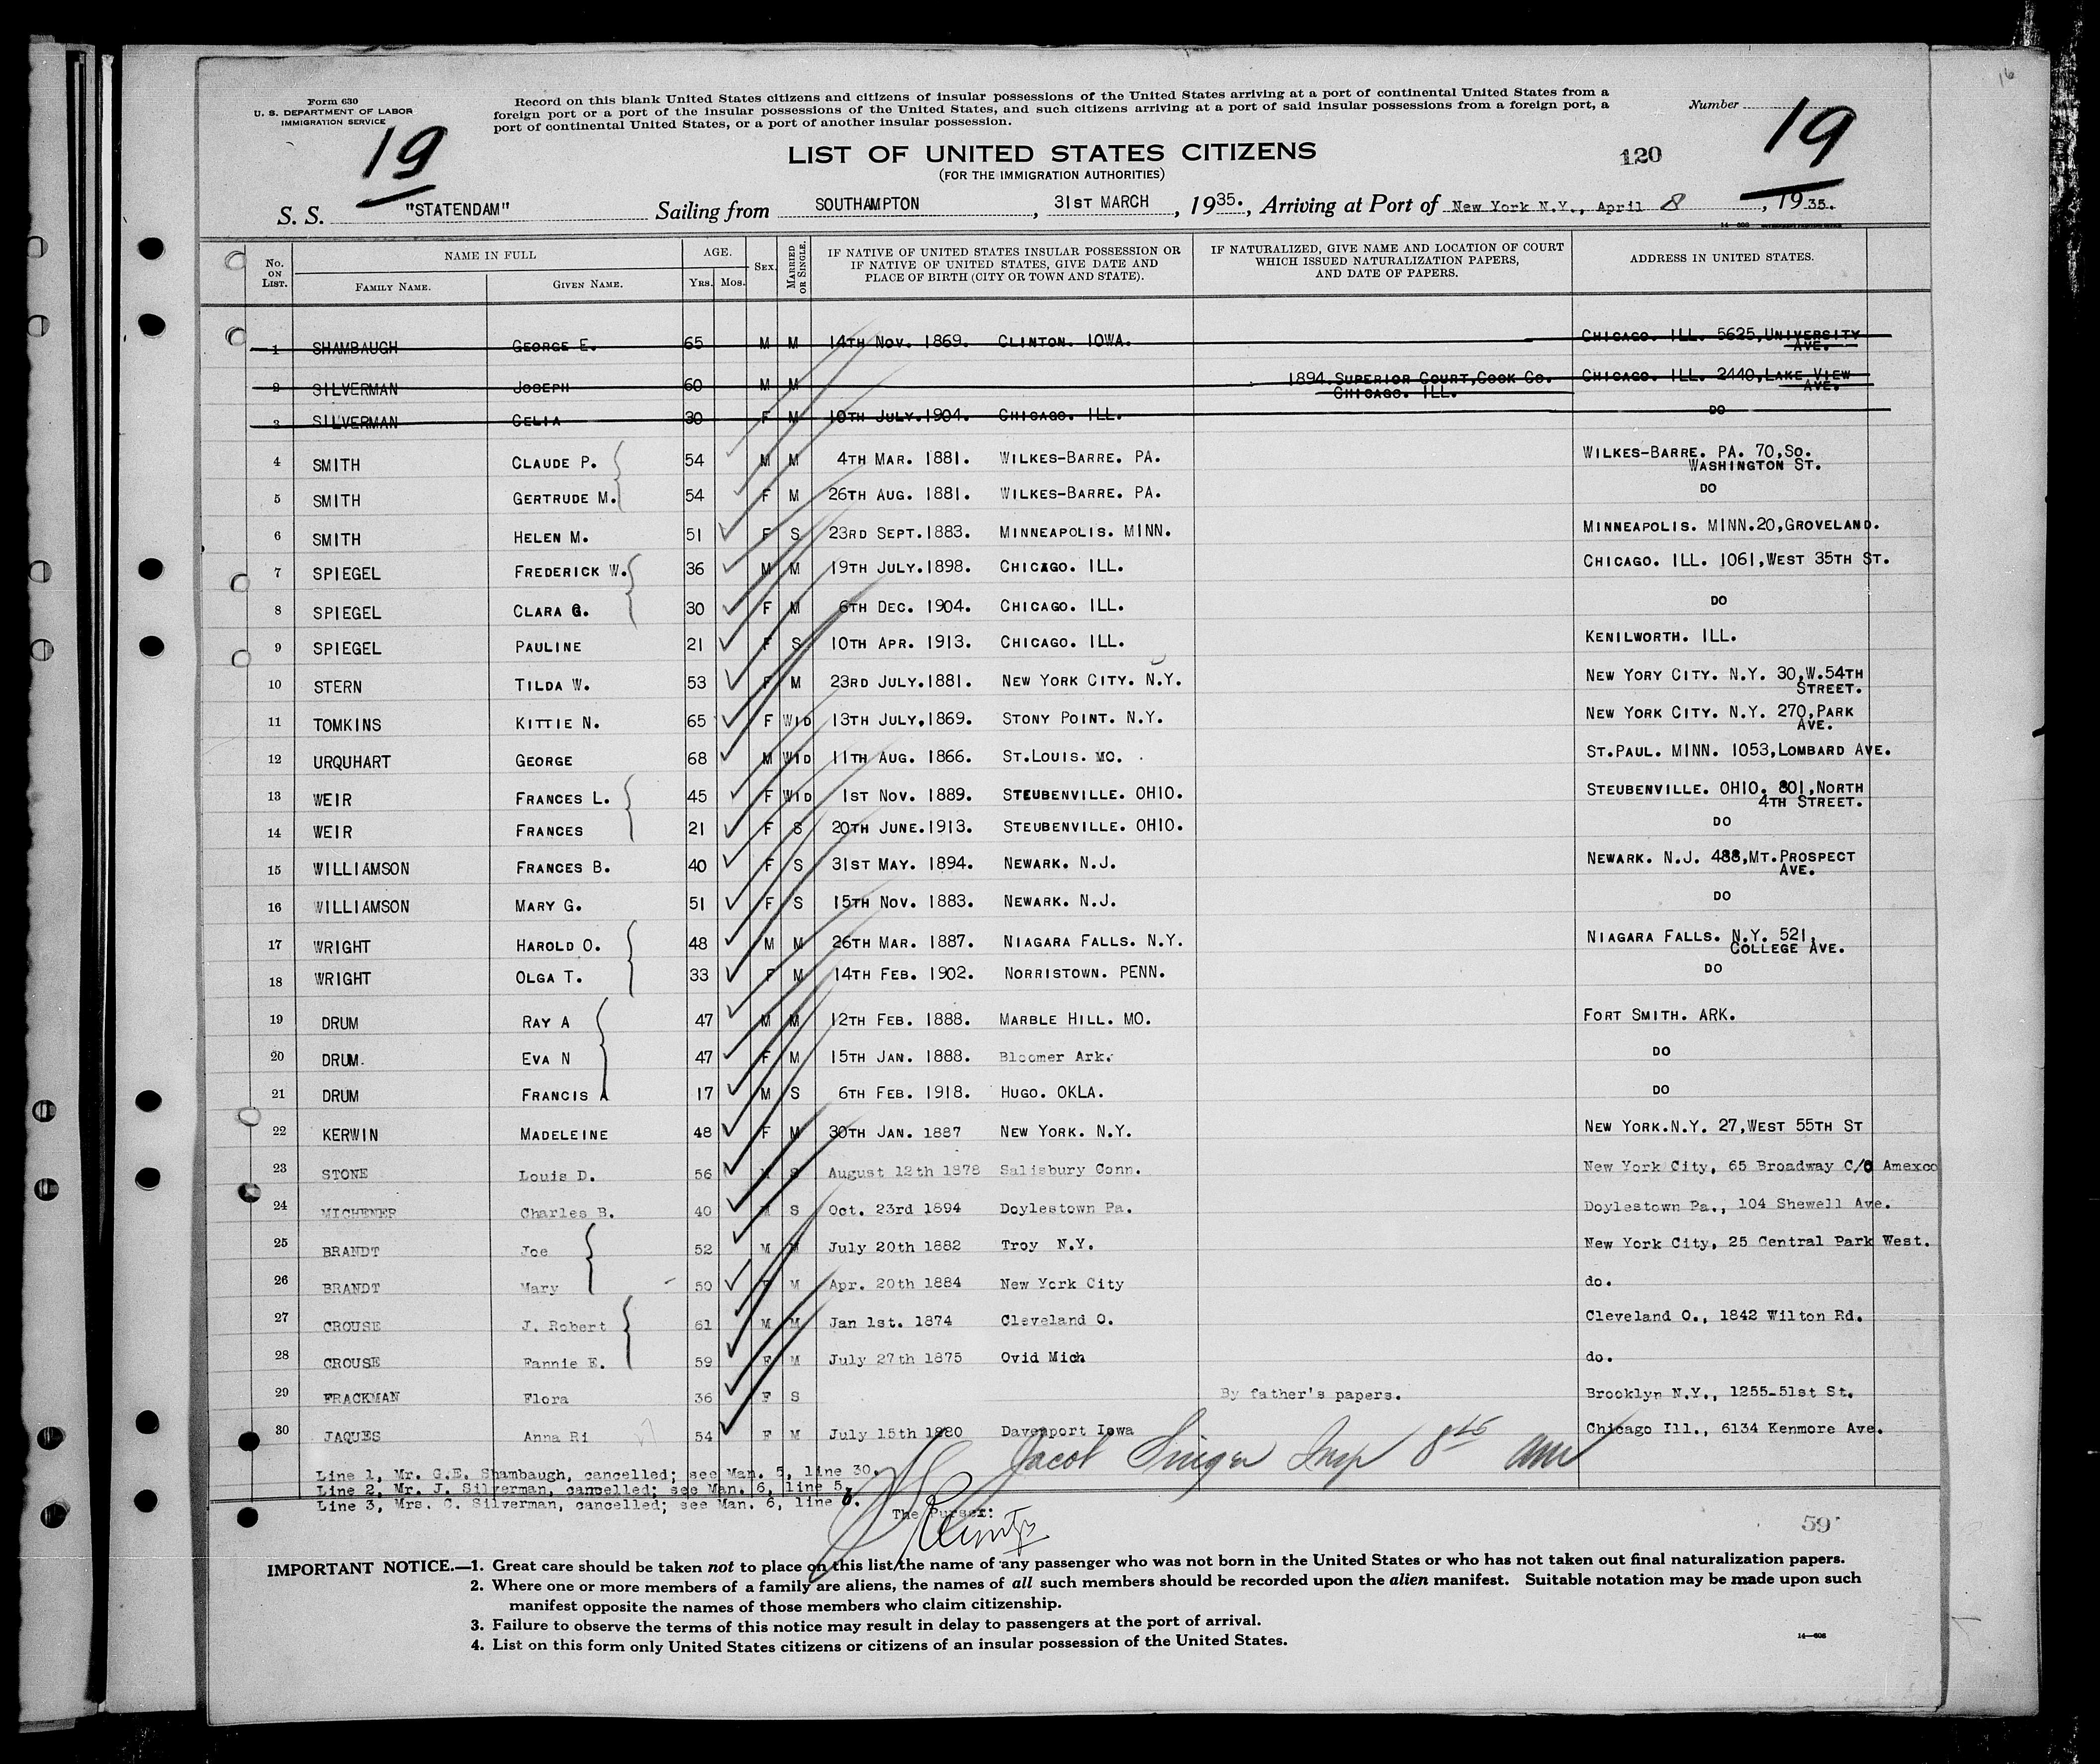 16
Form 630
U. S. DEPARTMENT OF LABOR
IMMIGRATION SERVICE
Record on this blank United States citizens and citizens of insular possessions of the United States arriving at a port of continental United States from a
foreign port or a port of the insular possessions of the United States, and such citizens arriving at a port of said insular possessions from a foreign port, a
port of continental United States, or a port of another insular possession.
Number
19
19
LIST OF UNITED STATES CITIZENS
120
(FOR THE IMMIGRATION AUTHORITIES)
S. S. "STATENDAM" Sailing from SOUTHAMPTON, 31ST MARCH, 1935., Arriving at Port of New York N.Y., April 8, 1935.
No. ON LIST. NAME IN FULL FAMILY NAME. GIVEN NAME. AGE. YRS. MOS. SEX. MARRIED OR SINGLE. IF NATIVE OF UNITED STATES INSULAR POSSESSION OR IF NATIVE OF UNITED STATES, GIVE DATE AND PLACE OF BIRTH (CITY OR TOWN AND STATE). IF NATURALIZED, GIVE NAME AND LOCATION OF COURT WHICH ISSUED NATURALIZATION PAPERS, AND DATE OF PAPERS. ADDRESS IN UNITED STATES.
1 SHAMBAUGH GEORGE E. 65 M M 14TH NOV. 1869. CLINTON. IOWA. CHICAGO. ILL. 5625, UNIVERSITY AVE.
2 SILVERMAN JOSEPH 60 M M 1894. SUPERIOR COURT, COOK CO. CHICAGO. ILL. CHICAGO. ILL. 2440, LAKE VIEW AVE.
3 SILVERMAN CELIA 30 F M 10TH JULY. 1904. CHICAGO. ILL. DO
4 SMITH CLAUDE P. 54 M M 4TH MAR. 1881. WILKES-BARRE. PA. WILKES-BARRE. PA. 70, SO. WASHINGTON ST.
5 SMITH GERTRUDE M. 54 F M 26TH AUG. 1881. WILKES-BARRE. PA. DO
6 SMITH HELEN M. 51 F S 23RD SEPT. 1883. MINNEAPOLIS. MINN. MINNEAPOLIS. MINN. 20, GROVELAND.
7 SPIEGEL FREDERICK W. 36 M M 19TH JULY. 1898. CHICAGO. ILL. CHICAGO. ILL. 1061, WEST 35TH ST.
8 SPIEGEL CLARA G. 30 F M 6TH DEC. 1904. CHICAGO. ILL. DO
9 SPIEGEL PAULINE 21 F S 10TH APR. 1913. CHICAGO. ILL. KENILWORTH. ILL.
10 STERN TILDA W. 53 F M 23RD JULY. 1881. NEW YORK CITY. N.Y. NEW YORY CITY. N.Y. 30, W. 54TH STREET.
11 TOMKINS KITTIE N. 65 F WID 13TH JULY, 1869. STONY POINT. N.Y. NEW YORK CITY. N.Y. 270, PARK AVE.
12 URQUHART GEORGE 68 M WID 11TH AUG. 1866. ST. LOUIS. MO. ST. PAUL. MINN. 1053, LOMBARD AVE.
13 WEIR FRANCES L. 45 F WID 1ST NOV. 1889. STEUBENVILLE. OHIO. STEUBENVILLE. OHIO. 801, NORTH 4TH STREET.
14 WEIR FRANCES 21 F S 20TH JUNE. 1913. STEUBENVILLE. OHIO. DO
15 WILLIAMSON FRANCES B. 40 F S 31ST MAY. 1894. NEWARK. N.J. NEWARK. N.J. 488, MT. PROSPECT AVE.
16 WILLIAMSON MARY G. 51 F S 15TH NOV. 1883. NEWARK. N.J. DO
17 WRIGHT HAROLD O. 48 M M 26TH MAR. 1887. NIAGARA FALLS. N.Y. NIAGARA FALLS. N.Y. 521, COLLEGE AVE.
18 WRIGHT OLGA T. 33 F M 14TH FEB. 1902. NORRISTOWN. PENN. DO
19 DRUM RAY A 47 M M 12TH FEB. 1888. MARBLE HILL. MO. FORT SMITH. ARK.
20 DRUM. EVA N 47 F M 15TH JAN. 1888. Bloomer Ark. DO
21 DRUM FRANCIS A 17 M S 6TH FEB. 1918. HUGO. OKLA. DO
22 KERWIN MADELEINE 48 F M 30TH JAN. 1887 NEW YORK. N.Y. NEW YORK. N.Y. 27, WEST 55TH ST
23 STONE Louis D. 56 M S August 12th 1878 Salisbury Conn. New York City, 65 Broadway C/O Amexco
24 MICHENER Charles B. 40 M S Oct. 23rd 1894 Doylestown Pa. Doylestown Pa., 104 Shewell Ave.
25 BRANDT Joe 52 M M July 20th 1882 Troy N.Y. New York City, 25 Central Park West.
26 BRANDT Mary 50 F M Apr. 20th 1884 New York City do.
27 CROUSE J. Robert 61 M M Jan 1st. 1874 Cleveland O. Cleveland O., 1842 Wilton Rd.
28 CROUSE Fannie E. 59 F M July 27th 1875 Ovid Mich do.
29 FRACKMAN Flora 36 F S By father's papers. Brooklyn N.Y., 1255-51st St.
30 JAQUES Anna Ri 54 F M July 15th 1880 Davenport Iowa Chicago Ill., 6134 Kenmore Ave.
Jacob Singer Insp
Line 1, Mr. G.E. Shambaugh, cancelled; see Man. 5, line 30.
Line 2, Mr. J. Silverman, cancelled; see Man. 6, line 5.
Line 3, Mrs. C. Silverman, cancelled; see Man. 6, line 6.
The Purser:
59
IMPORTANT NOTICE.—1. Great care should be taken not to place on this list the name of any passenger who was not born in the United States or who has not taken out final naturalization papers.
2. Where one or more members of a family are aliens, the names of all such members should be recorded upon the alien manifest. Suitable notation may be made upon such
manifest opposite the names of those members who claim citizenship.
3. Failure to observe the terms of this notice may result in delay to passengers at the port of arrival.
4. List on this form only United States citizens or citizens of an insular possession of the United States.